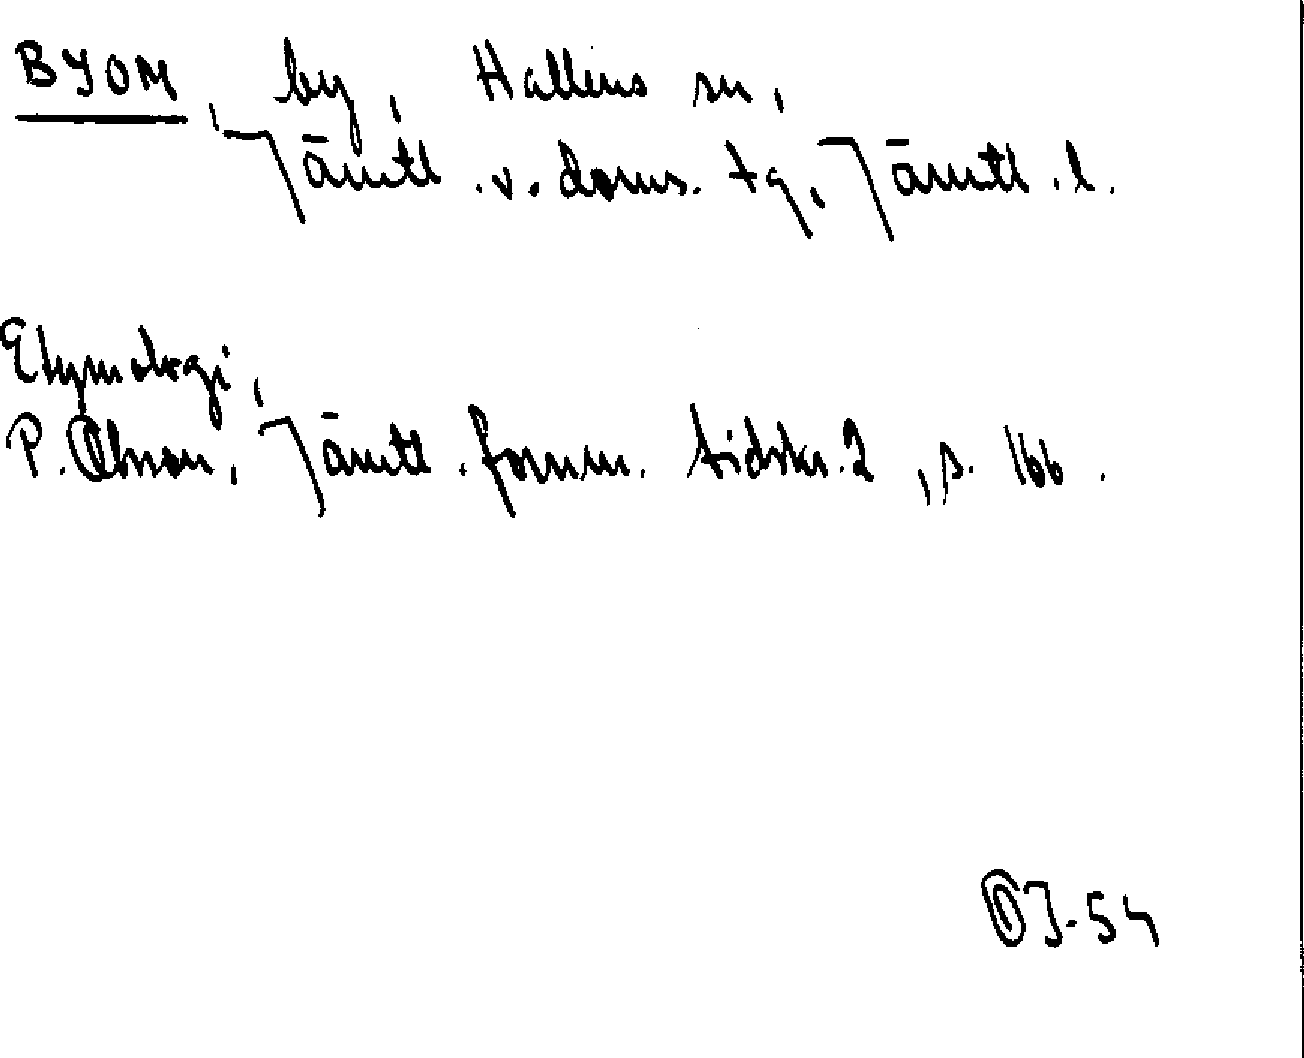 BYOM, by, Hallens sn,
Jämtl. v. doms. tg, Jämtl. l.
Etymologi,
P. Olsson, Jämtl. fornm. tidskr. 2, s. 166.
OJ-54